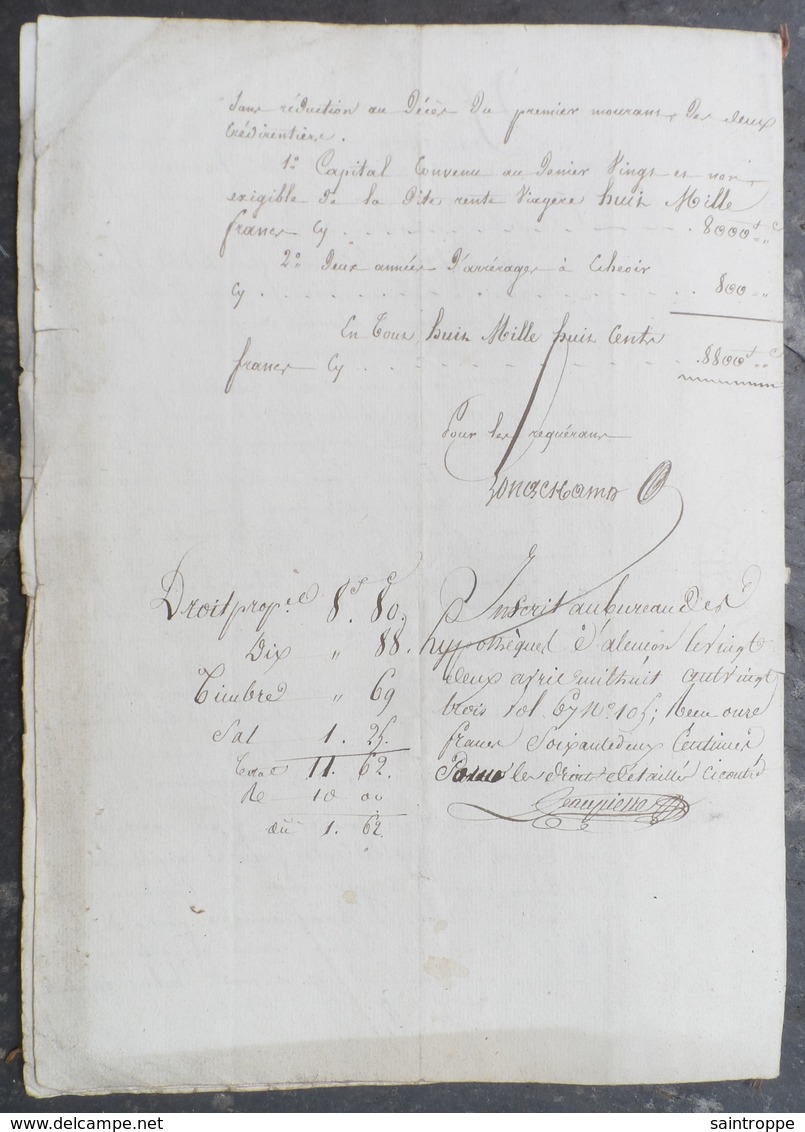 Sans réduction au Décès du premier mourant des deux
Crédirentière.
1º Capital Convenu au Denier Vingt et non
exigible de la dite rente Viagère huit Mille
francs Cy . . . . . . 8000 f " c
2º Deux années D'arrérages à Echeoir
Cy . . . . . . 800 "
En Tout huit Mille huit Cents
francs Cy . . . . . . 8800 f " c
Pour les requérans
Longchamp
Droit prop.el 8 f. 80 c.
Dix " 88.
Timbre " 69
Sal 1. 25.
Total 11. 62.
Re 10 00
dû 1. 62.
Inscrit au bureau des
hypothèques d'alencon le vingt
deux avril mil huit cent vingt
trois vol. 67 Nº 105; Recu onze
francs Soixante deux Centimes
Pour les droits detaillés ci contre
saintroppe